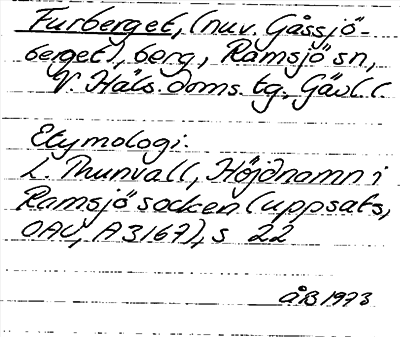 Furberget, (nuv. Gåssjö-
berget), berg, Ramsjö sn,
V. Häls. doms. tg, Gävl. l.
Etymologi.
L. Thunvall, Höjdnamn i
Ramsjö socken (uppsats,
OAU, A 3167), s 22
ÅB 1973